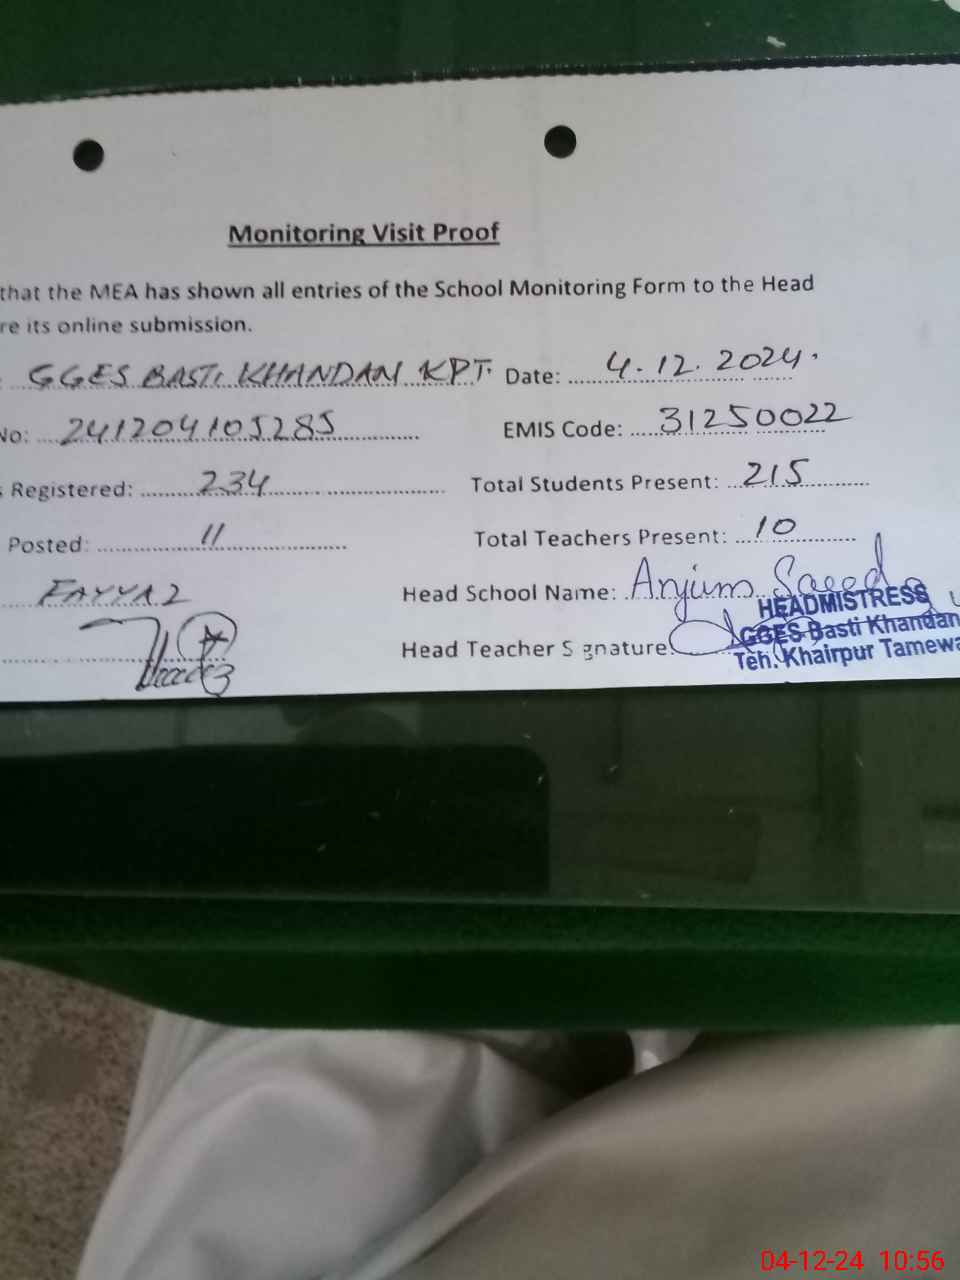 Monitoring Visit Proof
that the MEA has shown all entries of the School Monitoring Form to the Head
re its online submission.
GGES BASTI KHANDAN KPT. Date: 4.12.2024.
No: 241204105285 EMIS Code: 31250022
s Registered: 234 Total Students Present: 215
Posted: 11 Total Teachers Present: 10
FAYYAZ Head School Name: Anjum Saeed
HEADMISTRESS
Head Teacher Signature:
GGES Basti Khandan
Teh. Khairpur Tamewa
04-12-24 10:56